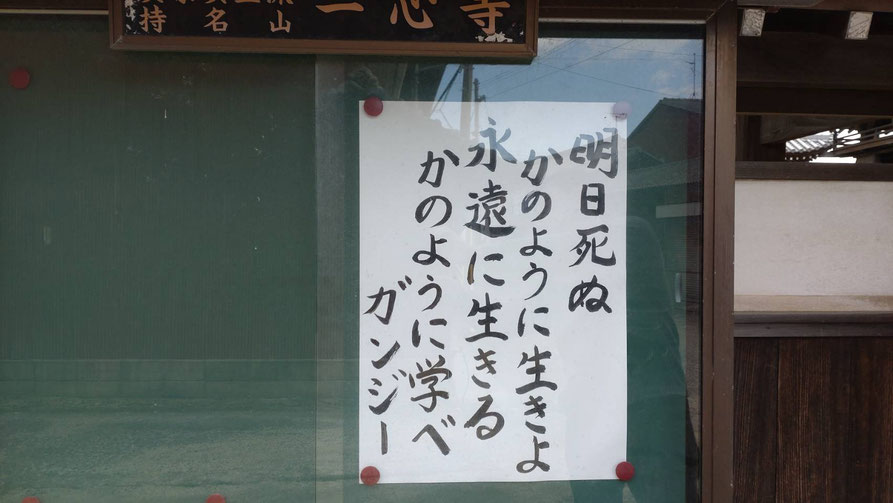 一心寺
明日死ぬ
かのように生きよ
永遠に生きる
かのように学べ
ガンジー